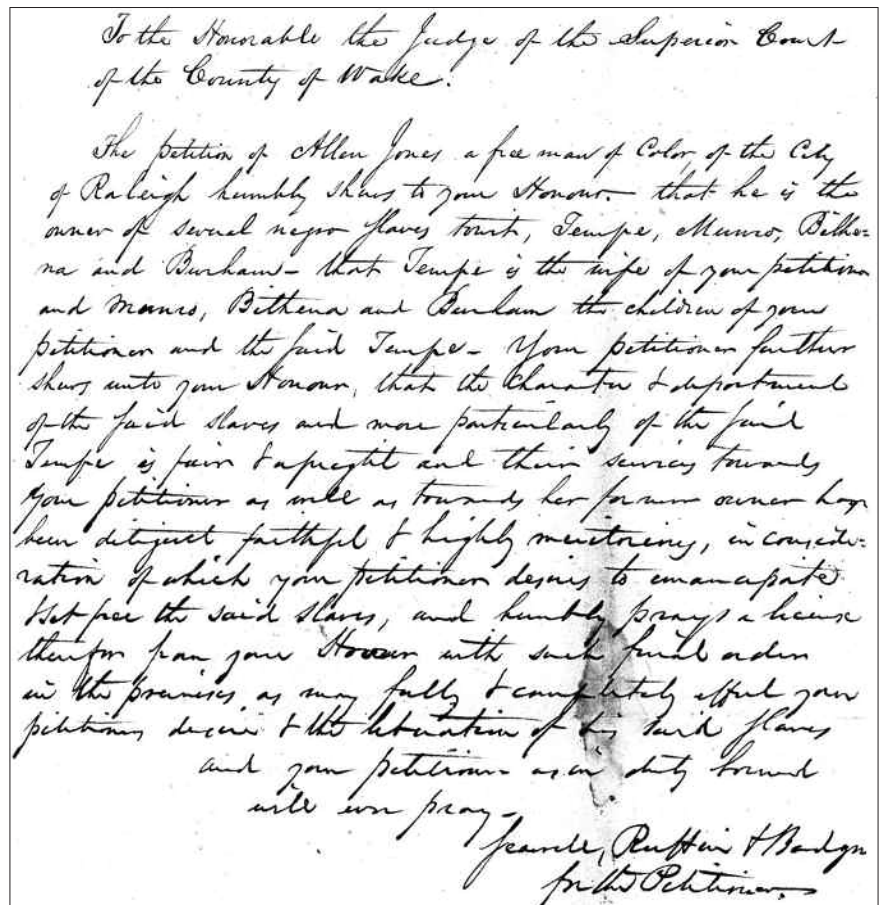 To the Honorable the Judge of the Superior Court
of the County of Wake.
The petition of Allen Jones a free man of Color, of the City
of Raleigh humbly shews to your Honour - that he is the
owner of several negro slaves towit, Tempe, Munro, Bithe=
na and Burham - that Tempe is the wife of your petitioner
and Munro, Bithena and Burham the children of your
petitioner and the said Tempe - Your petitioner further
shews unto your Honour, that the character & deportment
of the said slaves and more particularly of the said
Tempe is fair & upright and their services towards
your petitioner as well as towards her former owner have
been diligent faithful & highly meritorious, in conside=
ration of which your petitioner desires to emancipate
& set free the said slaves, and humbly prays a license
therefor from your Honour with such final orders
in the premises as may fully & completely effect your
petitioners desire & the liberation of his said slaves
and your petitioner as in duty bound
will ever pray -
Seawell, Ruffin & Badger
for the Petitioner.